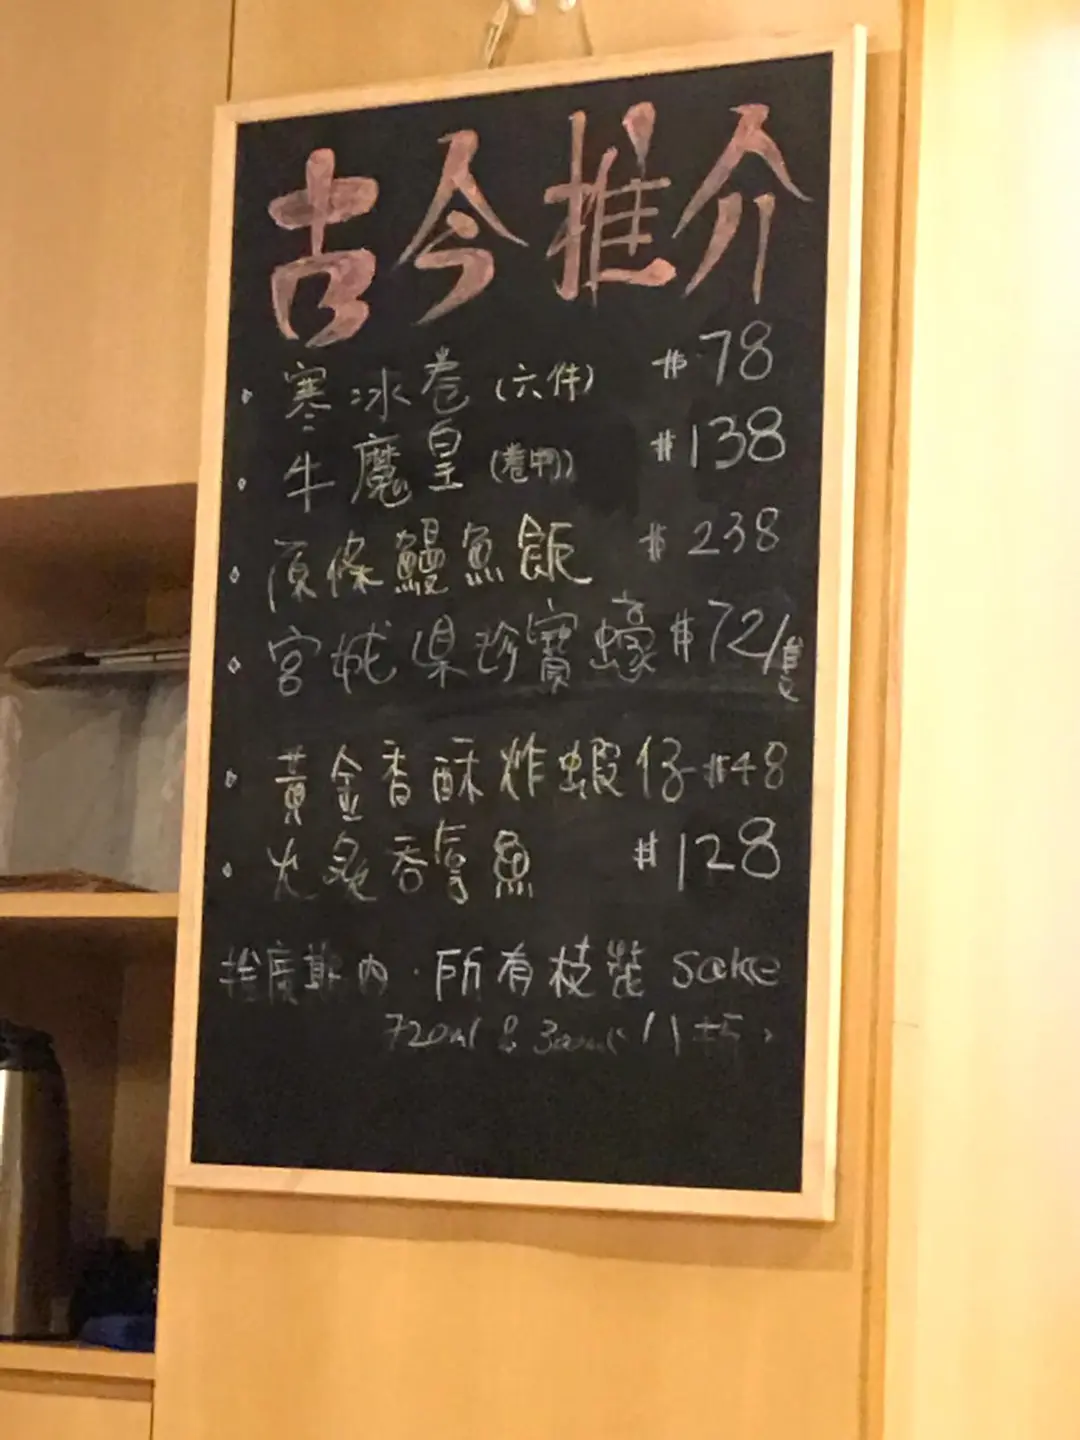 古今推介
· 寒冰卷 (六件) $78
· 牛魔皇 $138
· 原條鰻魚飯 $238
· 宮城県珍寶蠔 $72/隻
· 黃金香酥炸蝦仔 $48
· 火炙吞拿魚 $128
推廣期內·所有枝裝 sake
720ml & 300ml 八折